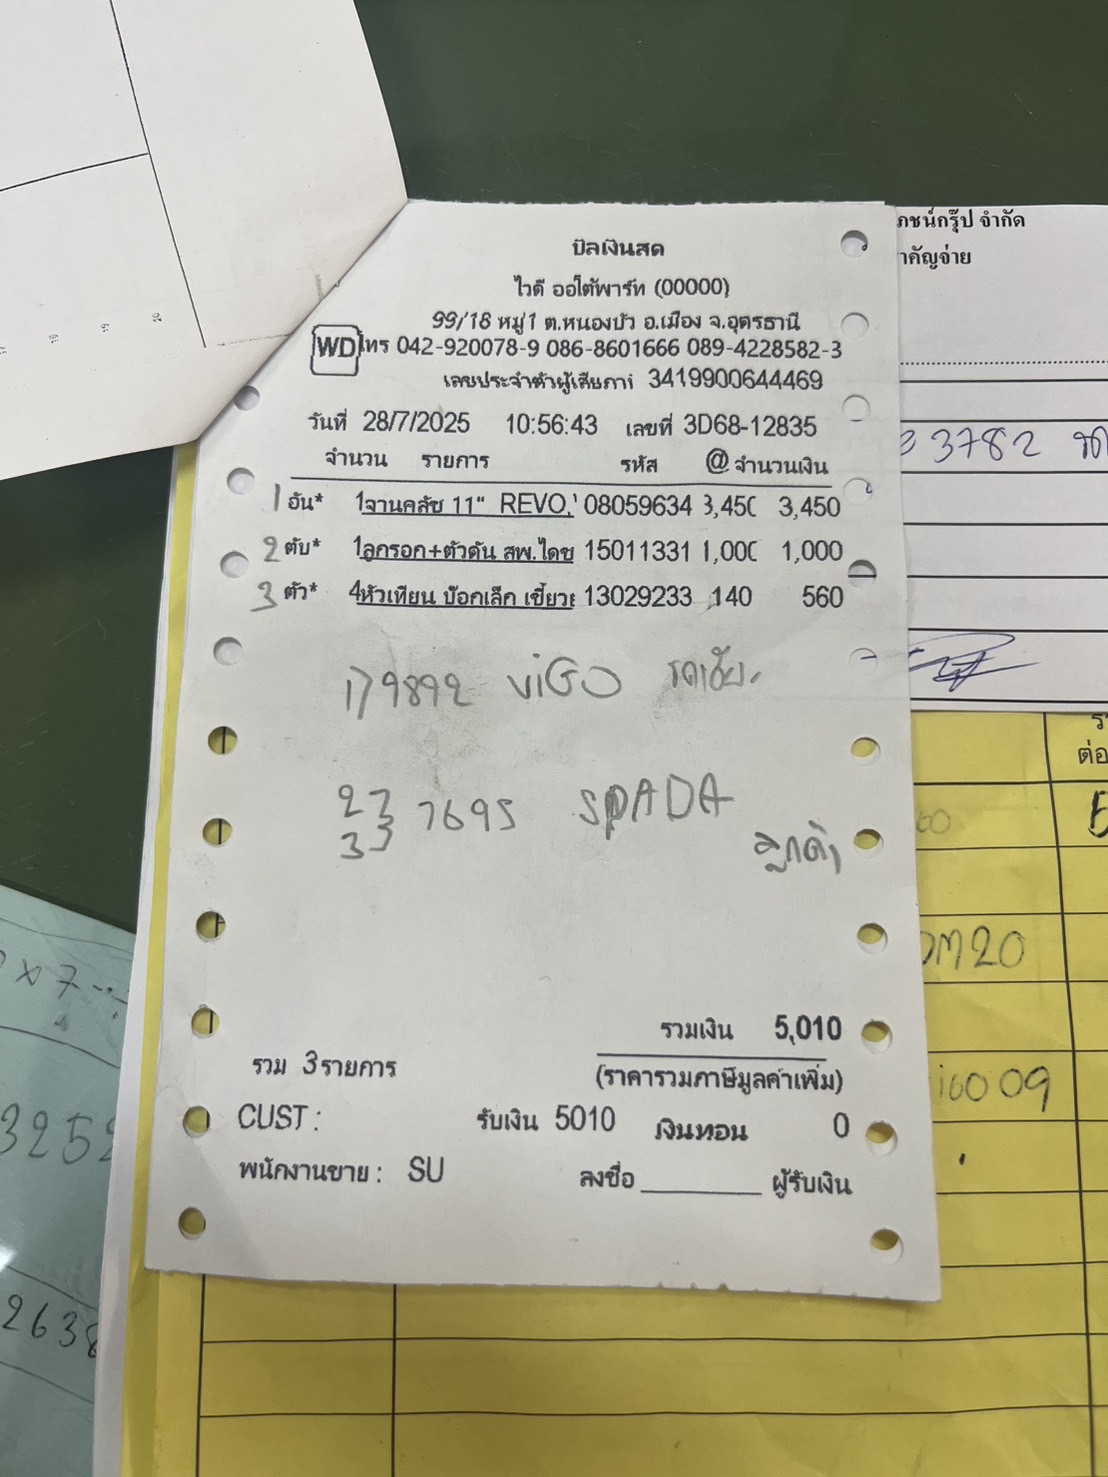 บิลเงินสด
ไวดี ออโต้พาร์ท (00000)
99/18 หมู่1 ต.หนองบัว อ.เมือง จ.อุดรธานี
WD โทร 042-920078-9 086-8601666 089-4228582-3
เลขประจำตัวผู้เสียภาษี 3419900644469
วันที่ 28/7/2025 10:56:43 เลขที่ 3D68-12835
จำนวน รายการ รหัส @ จำนวนเงิน
1 อัน* 1จานคลัช 11" REVO, 08059634 3,450 3,450
2 ตับ* 1ลูกรอก+ตัวดัน สพ.ไดช 15011331 1,000 1,000
3 ตัว* 4หัวเทียน บ๊อกเล็ก เขี้ยว 13029233 140 560
1) 9892 ViGO
2)
3) 7695 SPADA
ลูกค้า
รวมเงิน 5,010
รวม 3รายการ (ราคารวมภาษีมูลค่าเพิ่ม)
CUST : รับเงิน 5010 เงินทอน 0
พนักงานขาย : SU ลงชื่อ ผู้รับเงิน
ภชน์กรุ๊ป จำกัด
าคัญจ่าย
3782
ต่อ
M20
009
x 7
325
2638